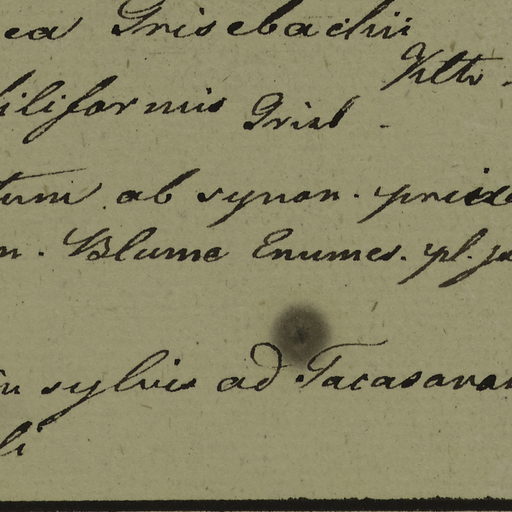 ea Grisebachii
Kltz.
filiformis Griseb.
tum ab synon. prior
n. Blume Enumer. pl. ja
in sylvis ad Tacasavan
li